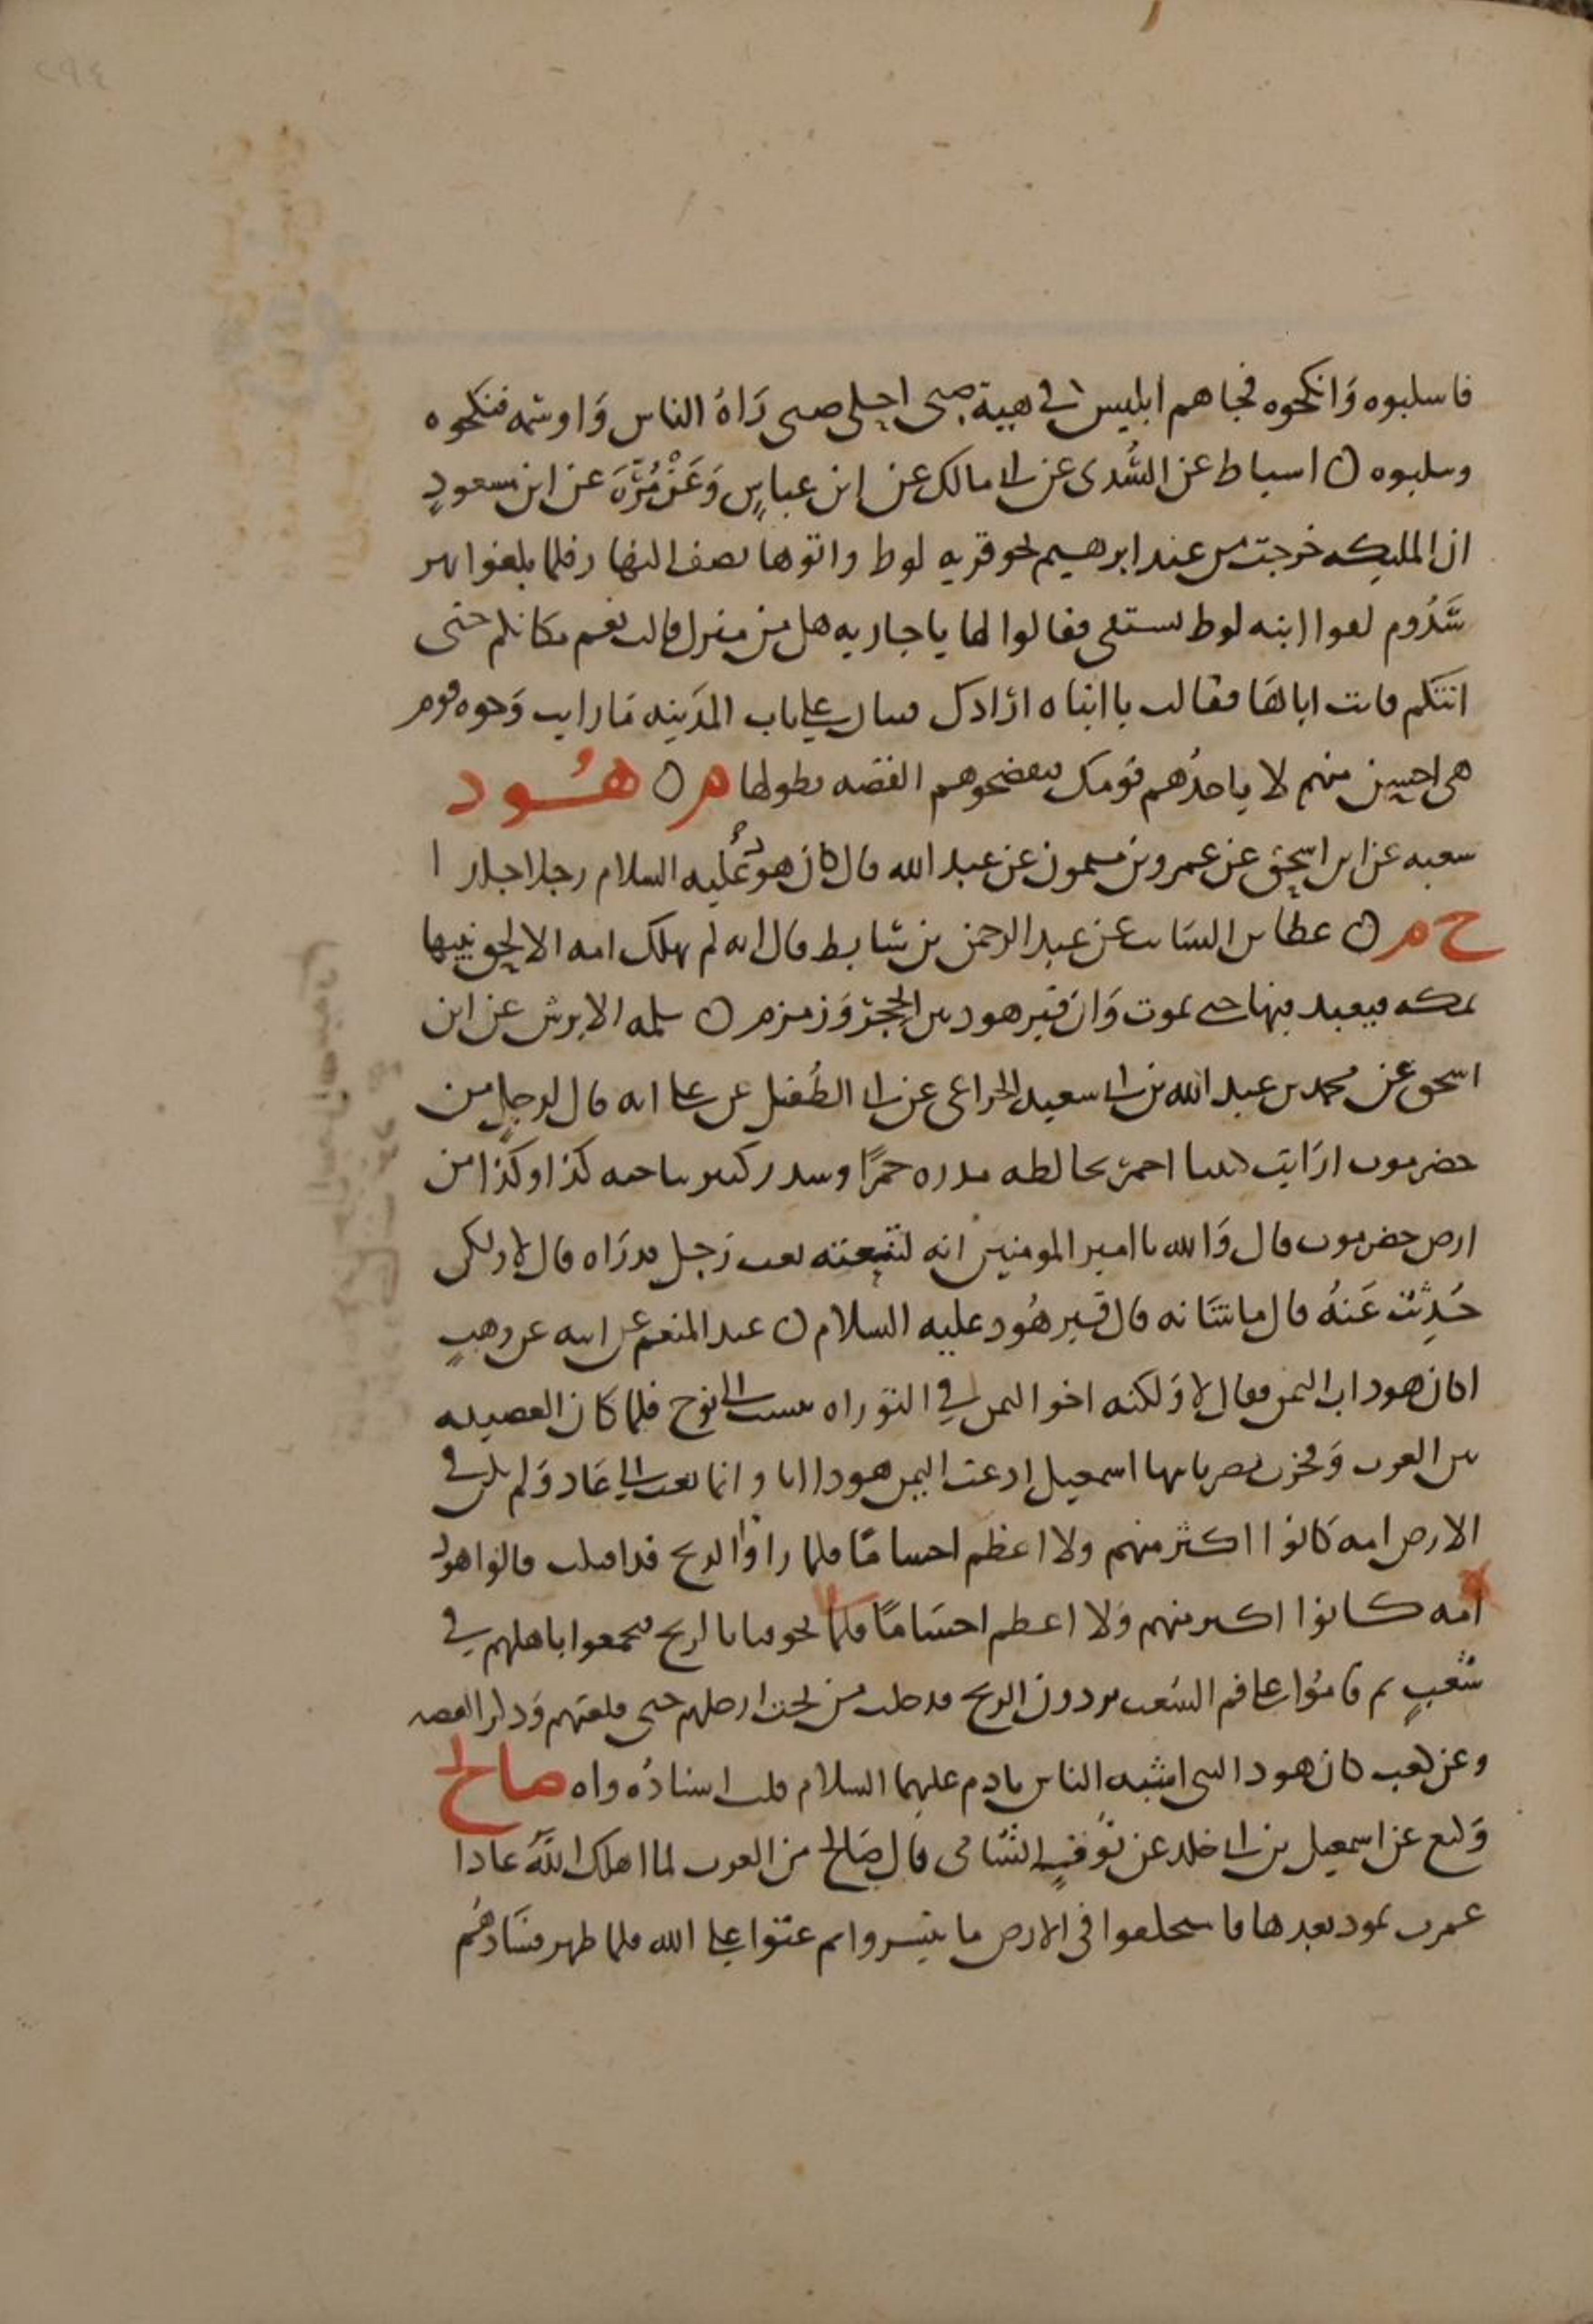 ٢٩٤
فاسلبوه وَانكحوه فجاهم ابليس في هيية صبى اجلى صبى رَاهُ الناس وَاوسمه فنكحوه
وسلبوه ن اسباط عن السُّدى عن ابى مالك عن ابن عباسٍ وَعَنْ مُرَّةَ عن ابن مسعودٍ
ان المليكه خرجت من عند ابرهيم نحو قريه لوط واتوها نصف النهار فلما بلغوا نهر
سَدُوم لقوا ابنه لوط تستقى فقالوا لها ياجاريه هل من منزل قالت نعم مكانكم حتى
اتيكم فاتت اباها فقالت يا ابتاه ارادك فتيان على باب المدَينه مَا رايت وَجوه قوم
هى احسن منهم لا ياخذُهم قومك فيفضحوهم القصّه بطولها هر ن هُود
شعبه عن ابى اسحٰق عن عمرو بن ميمون عن عبد الله قال كان هودٌ عَليه السلام رجلا جلدا
ح م ن عطا بن السَائب عن عبد الرحمن بن سَابط قال انه لم تهلك امه الا لحق نبيها
بمكه فيعبد فيها حتى يموت وَان قبر هود بين الحجرّ وَزمزم ن سلمه الابرش عن ابن
اسحق عن محمد بن عبد الله بن ابى سعيد الخزاعى عن ابى الطُفيل عن على انه قال لرجلٍ من
حضرموت ارَايت كثيبا احمرَ يخالطه مدره حمرًا وسدر كثير بناحيه كذا وكذا من
ارض حضرموت قال وَالله يا امير المومنين انه لتنعته نعت رَجل قد رَاه قال لا ولكنى
حُدِثْت عَنهُ قال ما شَانه قال قبر هُود عليه السلام ن عبد المنعم عن ابيه عن وهبٍ
اكان هود اب اليمن فقال لا وَلكنه اخو اليمن في التوَراه ينسب الى نوح فلما كان العصبيه
بين العرب وَفخرت مضر بابيها اسمعيل ادعت اليمن هودا ابا وانما بعث الى عَاد وَلم يكن في
الارض امه كَانوا اكثر منهم ولا اعظم اجسامًا فلما رَاوْا الريح قد اقبلت قالوا هود
امه كانوا اكثر منهم وَلا اعظم اجسَامًا فلما يخوفنا بالريح فجمعوا باهلهم في
شعبٍ ثم قامُوا على فم الشعب يردون الريح فدخلت من تحت ارجلهم حتى قلعتهم وَذكر القصه
وعن كعب كان هود النبى اشبه الناس بادم عليهما السلام قلت اسنادُه واه صالح
وَكيع عن اسمعيل بن ابى خلد عن نَوفٍ الشَامى قال صَالح من العرب لما اهلك اللهُ عادا
عمرت ثمود بعدها فاستخلفوا فى الارض فانتشروا ثم عتوا على الله فلما ظهر فسَادهُم